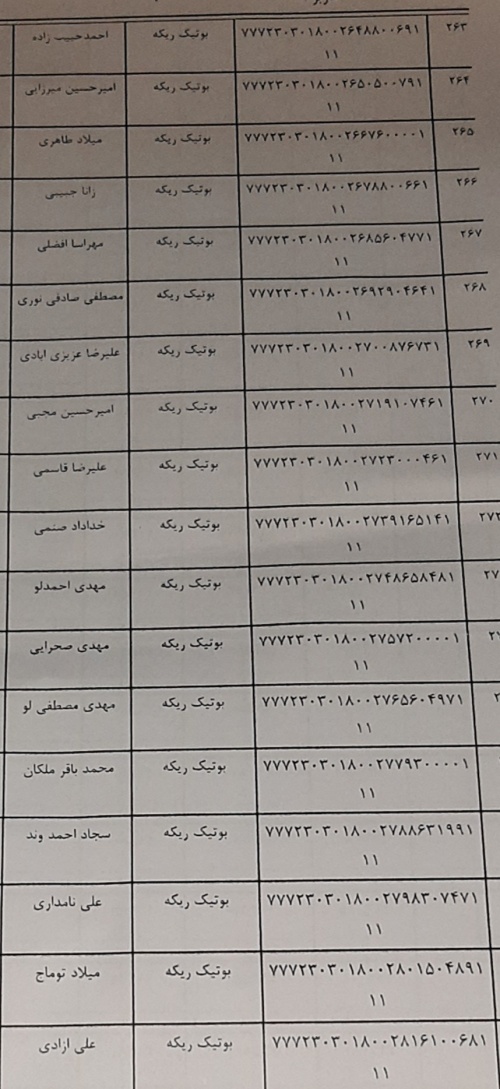 ۲۶۳ ۷۷۷۲۳۰۳۰۱۸۰۰۲۶۴۸۸۰۰۶۹۱ بوتیک ریکه احمدحبیب زاده
۱۱
۲۶۴ ۷۷۷۲۳۰۳۰۱۸۰۰۲۶۵۰۵۰۰۷۹۱ بوتیک ریکه امیرحسین میرزایی
۱۱
۲۶۵ ۷۷۷۲۳۰۳۰۱۸۰۰۲۶۶۷۶۰۰۰۰۱ بوتیک ریکه میلاد طاهری
۱۱
۲۶۶ ۷۷۷۲۳۰۳۰۱۸۰۰۲۶۷۸۸۰۰۶۶۱ بوتیک ریکه زانا حبیبی
۱۱
۲۶۷ ۷۷۷۲۳۰۳۰۱۸۰۰۲۶۸۵۶۰۴۷۷۱ بوتیک ریکه مهراسا افضلی
۱۱
۲۶۸ ۷۷۷۲۳۰۳۰۱۸۰۰۲۶۹۲۹۰۴۶۴۱ بوتیک ریکه مصطفی صادقی نوری
۱۱
۲۶۹ ۷۷۷۲۳۰۳۰۱۸۰۰۲۷۰۰۸۷۶۷۳۱ بوتیک ریکه علیرضا عزیزی ابادی
۱۱
۲۷۰ ۷۷۷۲۳۰۳۰۱۸۰۰۲۷۱۹۱۰۷۴۶۱ بوتیک ریکه امیرحسین مجبی
۱۱
۲۷۱ ۷۷۷۲۳۰۳۰۱۸۰۰۲۷۲۳۰۰۰۴۶۱ بوتیک ریکه علیرضا قاسمی
۱۱
۷۷۷۲۳۰۳۰۱۸۰۰۲۷۳۹۱۶۵۱۴۱ بوتیک ریکه خداداد صنمی
۱۱
۷۷۷۲۳۰۳۰۱۸۰۰۲۷۴۸۶۵۸۴۸۱ بوتیک ریکه مهدی احمدلو
۱۱
۷۷۷۲۳۰۳۰۱۸۰۰۲۷۵۷۲۰۰۰۰۱ بوتیک ریکه مهدی صحرایی
۱۱
۷۷۷۲۳۰۳۰۱۸۰۰۲۷۶۵۶۰۴۹۷۱ بوتیک ریکه مهدی مصطفی لو
۱۱
۷۷۷۲۳۰۳۰۱۸۰۰۲۷۷۹۳۰۰۰۰۱ بوتیک ریکه محمد باقر ملکان
۱۱
۷۷۷۲۳۰۳۰۱۸۰۰۲۷۸۸۶۳۱۹۹۱ بوتیک ریکه سجاد احمد وند
۱۱
۷۷۷۲۳۰۳۰۱۸۰۰۲۷۹۸۳۰۷۴۷۱ بوتیک ریکه علی نامداری
۱۱
۷۷۷۲۳۰۳۰۱۸۰۰۲۸۰۱۵۰۴۸۹۱ بوتیک ریکه میلاد توماج
۱۱
۷۷۷۲۳۰۳۰۱۸۰۰۲۸۱۶۱۰۰۶۸۱ بوتیک ریکه علی ازادی
۱۱